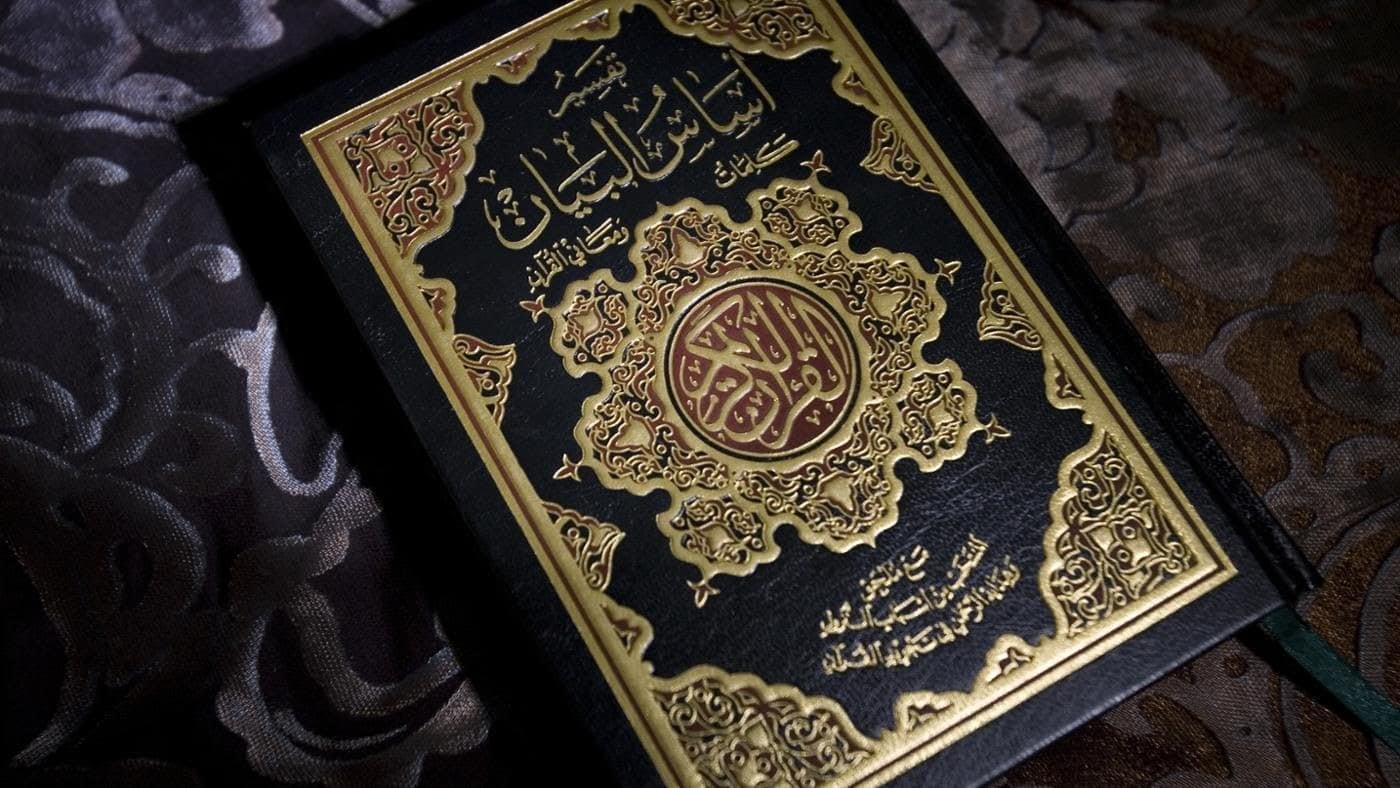 تفسير
أساس البيان
كلمات
ومعاني القرآن
القرآن الكريم
مع ملحق
المنتخب من أسباب النزول
ورسالة الرحمن في تجويد القرآن